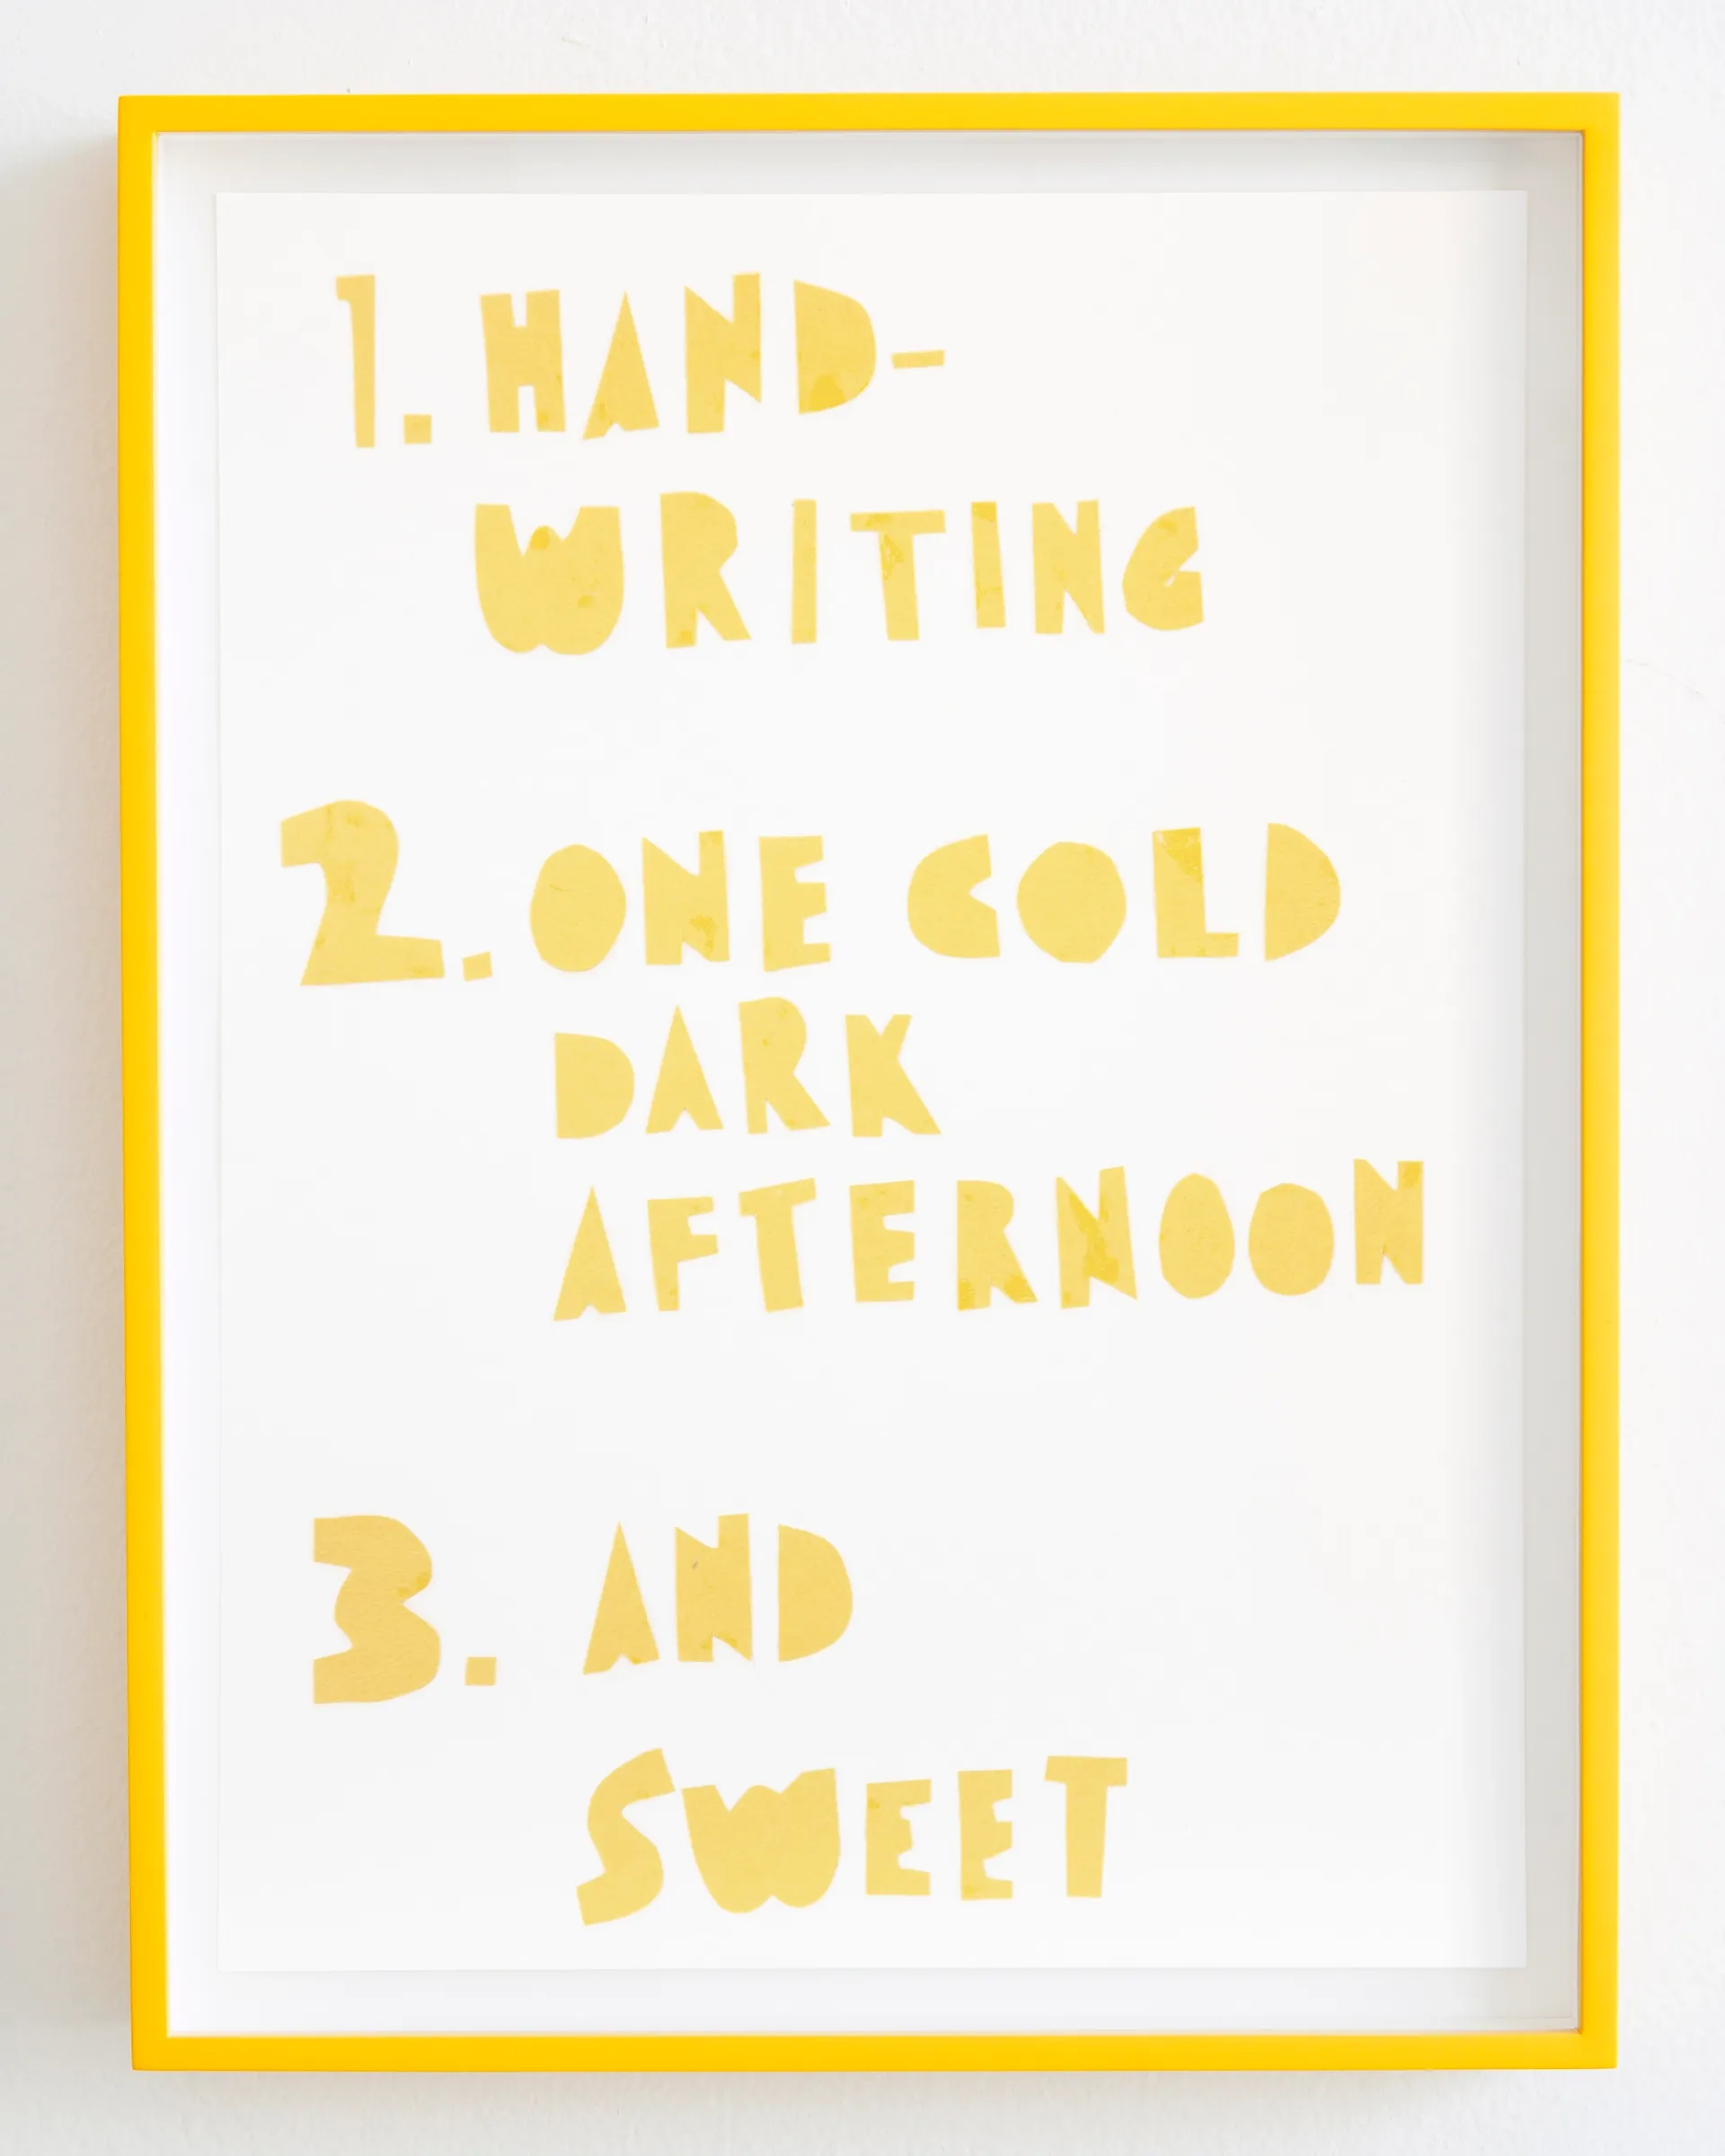 1. HAND-
WRITING
2. ONE COLD
DARK
AFTERNOON
3. AND
SWEET